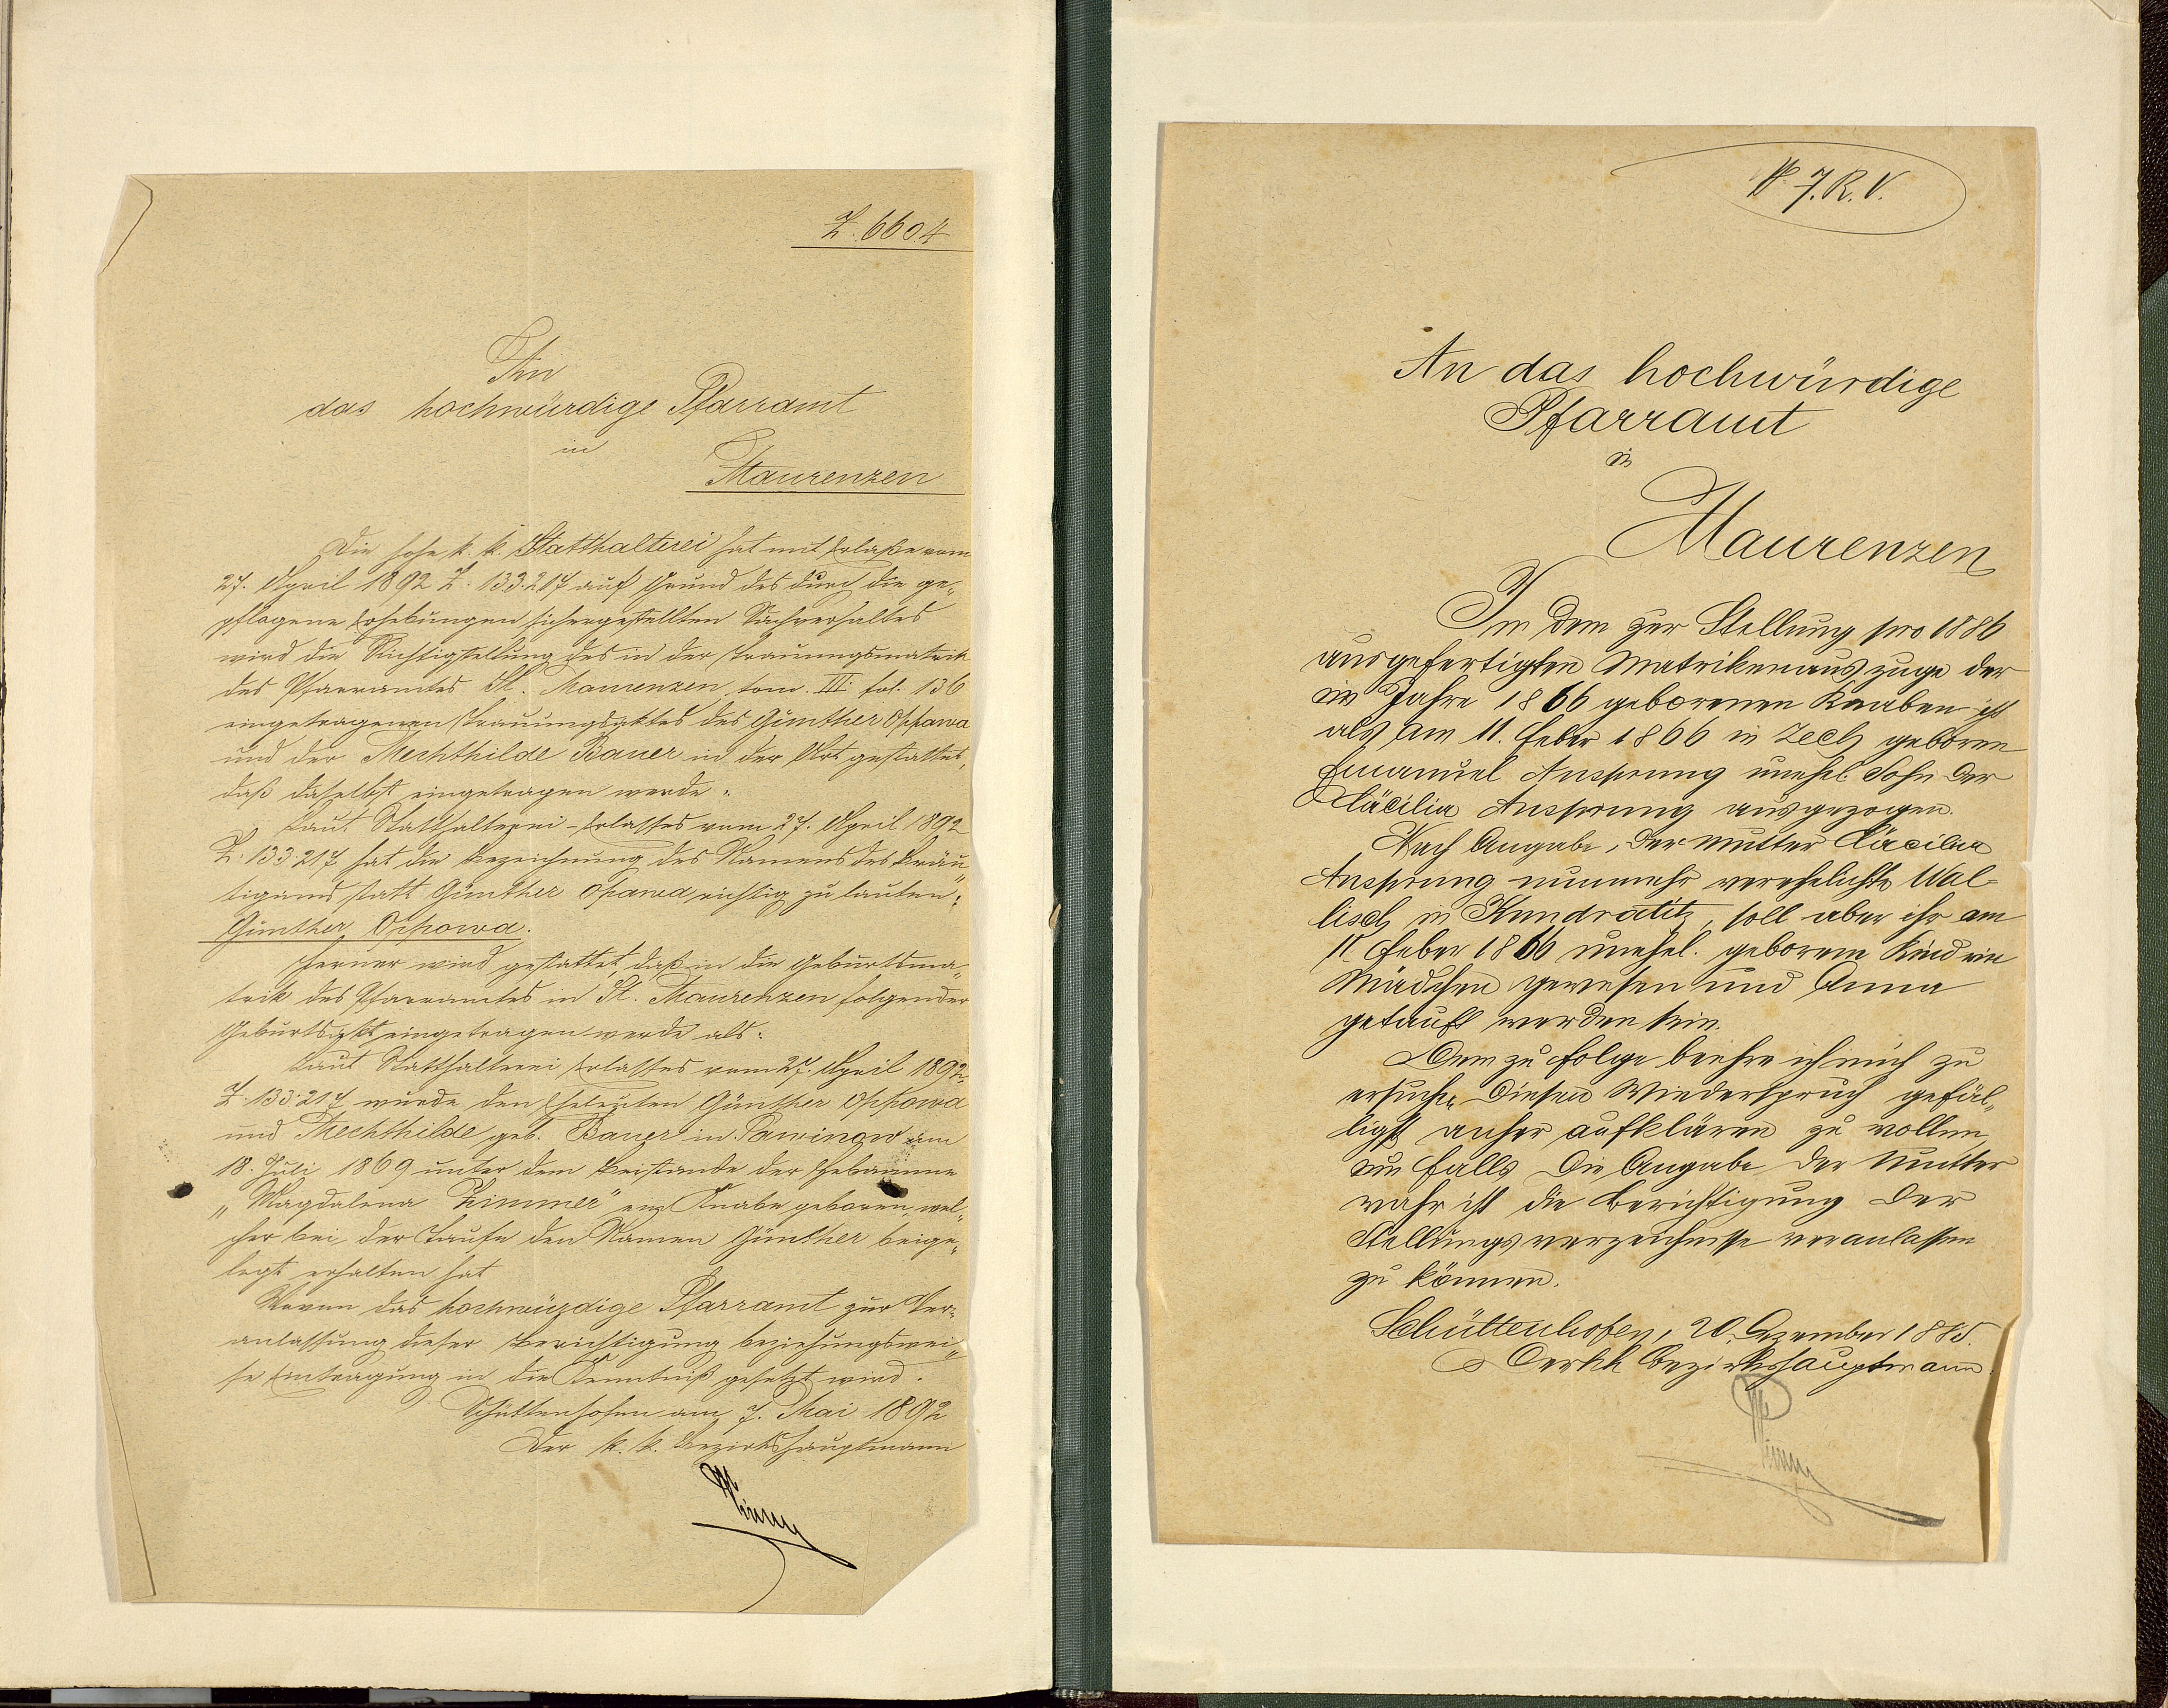 Z. 6604
An
das hochwürdige Pfarramt
in
Maurenzen
Die hohe k. k. Statthalterei hat mit Erlaße vom
27. April 1892 Z. 133.217 auf Grund des durch die ge„
pflogene Erhebungen sichergestellten Sachverhaltes
wird die Richtigstellung des in der Trauungsmatrik
des Pfarramtes St. Maurenzen tom. III. fol. 136
eingetragenen Trauungsaktes des Günther Oppawa
und der Mechthilde Bauer in der Art gestattet,
daß daselbst eingetragen werde:
Laut Statthalterei-Erlasses vom 27. April 1892
Z. 133.217 hat die Bezeichnung des Namens des Bräu„
tigams statt Günther Opawa richtig zu lauten:
Günther Oppowa.
Ferner wird gestattet, daß in die Geburtsma„
trik des Pfarramtes in St. Maurenzen folgender
Geburtsakt eingetragen werde als:
Laut Statthalterei Erlasses vom 27. April 1892
Z. 133.217 wurde den Eheleuten Günther Oppowa
und Mechthilde geb. Bauer in Pawinow am
18. Juli 1869 unter dem Beistande der Hebamme
„Magdalena Zimmer" ein Knabe geboren, wel„
cher bei der Taufe den Namen Günther beige„
legt erhalten hat
Wovon das hochwürdige Pfarramt zur Ver„
anlassung dieser Berichtigung beziehungswei„
se Eintragung in die Kenntniß gesetzt wird.
Schüttenhofen am 7. Mai 1892
Der k. k. Bezirkshauptmann
7. R. V.
An das hochwürdige
Pfarramt
in
Maurenzen
In dem zur Stellung pro 1886
ausgefertigten Matrikenauszuge der
im Jahre 1866 geborenen Knaben ist
als am 11. Feber 1866 in Zech geboren
Emanuel Ansprung unehel. Sohn der
Cäcilia Ansprung ausgezogen.
Nach Angabe, der Mutter Cäcilia
Ansprung nunmehr verehelichte Wal-
lisch in Kundratitz, soll aber ihr am
11 Feber 1866 unehel. geborene Kind ein
Mädchen gewesen und Anna
getauft worden sein.
Dem zu Folge beehre ich mich zu
ersuchen diesen Wiederspruch gefäl„
ligst anher aufklären zu wollen,
um falls die Angabe der Mutter
wahr ist die Berichtigung der
Stellungsverzeichnisse veranlassen
zu können.
Schüttenhofen, 20. Dezember 1885.
Der kk Bezirkshauptmann.